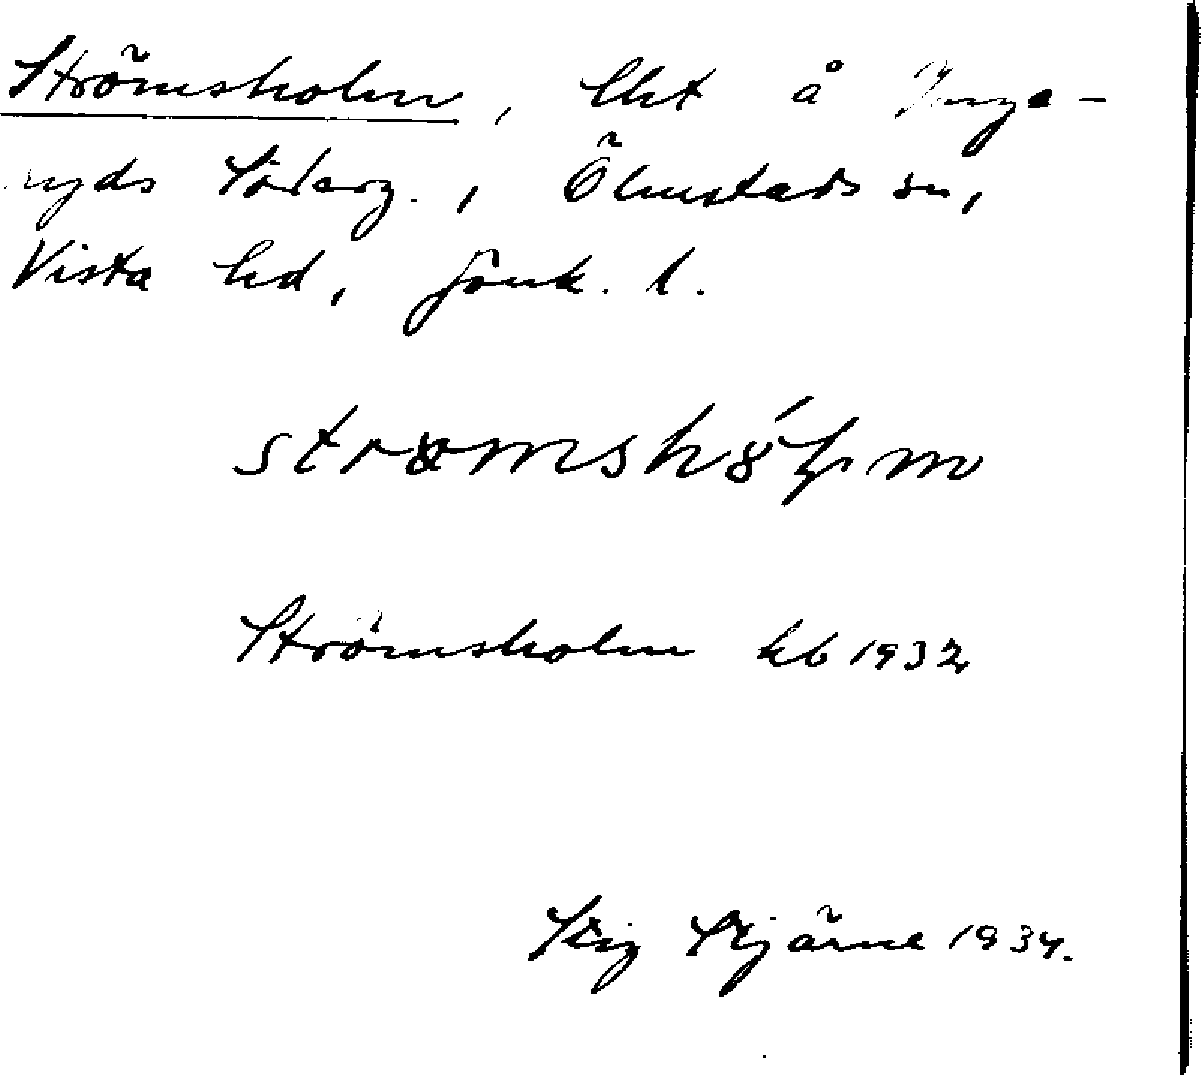 Strömsholm, lht å Inga-
ryds Söderg., Ölmstads sn,
Vista hd, Jönk. l.
strømshȯ́ɫm
Strömsholm kb 1932
Stig Stjärne 1934.